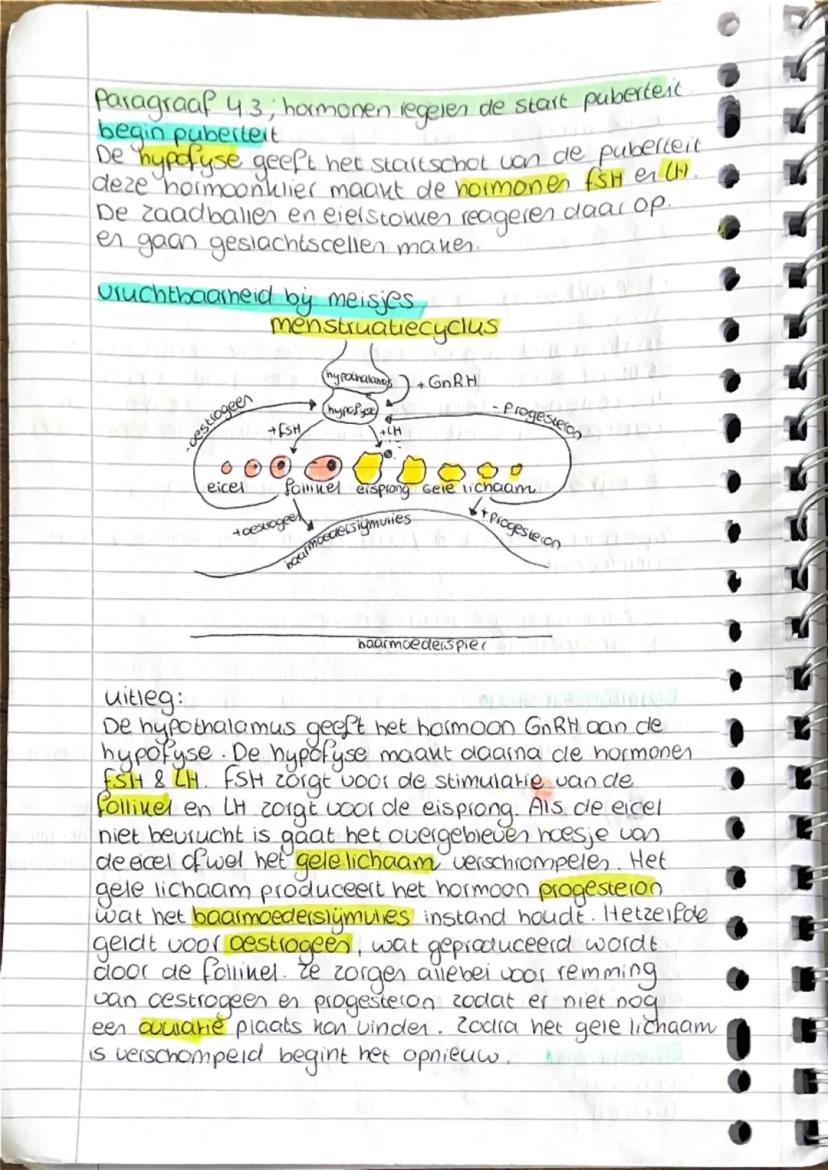 Paragraaf 4.3; hormonen regelen de start puberteit
begin puberteit
De hypofyse geeft het startschot van de puberteit
deze hormoonklier maakt de hormonen FSH en LH.
De zaadballen en eierstokken reageren daar op.
en gaan geslachtscellen maken.
vruchtbaarheid bij meisjes
menstruatiecyclus
hypothalamus
+ GnRH
hypofyse
-oestrogeen
- Progesteron
+FSH
+LH
eicel follikel eisprong gele lichaam
+oestrogeen
baarmoederslijmvlies
+progesteron
baarmoederspier
uitleg:
De hypothalamus geeft het hormoon GnRH aan de
hypofyse. De hypofyse maakt daarna de hormonen
FSH & LH. FSH zorgt voor de stimulatie van de
follikel en LH zorgt voor de eisprong. Als de eicel
niet bevrucht is gaat het overgebleven hoesje van
de eicel ofwel het gele lichaam verschrompelen. Het
gele lichaam produceert het hormoon progesteron
wat het baarmoederslijmvlies instand houdt. Hetzelfde
geldt voor oestrogeen, wat geproduceerd wordt
door de follikel. Ze zorgen allebei voor remming
van oestrogeen en progesteron zodat er niet nog
een ovulatie plaats kan vinden. Zodra het gele lichaam
is verschompeld begint het opnieuw.